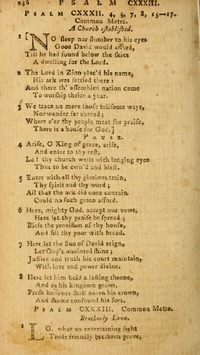 236 PSALM CXXXIII.
PSALM CXXXII. 4, 5, 7, 8, 15—17.
Common Metre.
A Church established.
1 [NO sleep nor slumber to his eyes
Good David would afford,
Till he had found below the skies
A dwelling for the Lord.
2 The Lord in Zion plac'd his name,
His ark was settled there:
And there th' assembled nation came
To worship thrice a year.
3 We trace no more those toilsome ways,
Nor wander far abroad;
Where e'er thy people meet for praise,
There is a house for God.]
PAUSE.
4 Arise, O King of grace, arise,
And enter to thy rest,
Lo! thy church waits with longing eyes
Thus to be own'd and blest.
5 Enter with all thy glorious train,
Thy spirit and thy word;
All that the ark did once contain
Could no such grace afford.
6 Here, mighty God, accept our vows,
Here let thy praise be spread;
Bless the provision of thy house,
And fill thy poor with bread.
7 Here let the Son of David reign,
Let God's anointed shine;
Justice and truth his court maintain,
With love and power divine.
8 Here let him hold a lasting throne,
And as his kingdom grows,
Fresh honours shall adorn his crown,
And shame confound his foes.
PSALM CXXXIII. Common Metre.
Brotherly Love.
1 LO, what an entertaining sight
Those friendly brethren prove,